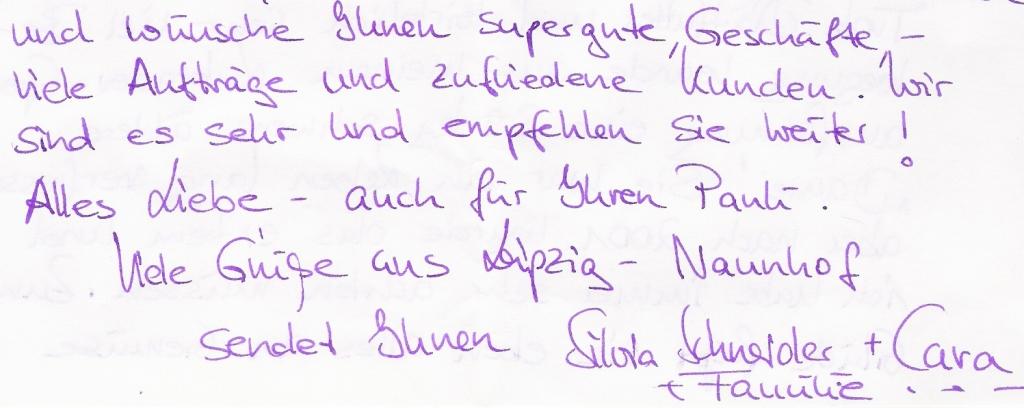 und wünsche Ihnen supergute „Geschäfte –
viele Aufträge und zufriedene Kunden. Wir
sind es sehr und empfehlen Sie weiter!
Alles Liebe – auch für Ihren Pauli.
Viele Grüße aus Leipzig – Naunhof
sendet Ihnen Silvia Schneider + Cara
+ Familie . - –